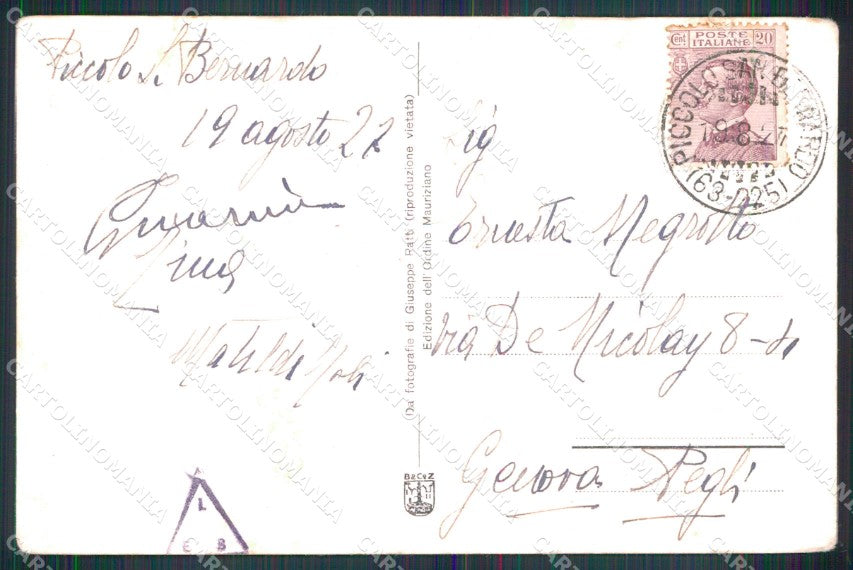 Piccolo S. Bernardo
19 agosto 27
Lina
Matildi
L
B
(Da fotografie di Giuseppe Ratti (riproduzione vietata)
Edizione dell'Ordine Mauriziano
POSTE ITALIANE
Cent 20
PICCOLO SAN BERNARDO
19.8.27
(63-025)
Sig
Ernesta Negrotto
Via De Nicolay 8-4
Genova Pegli
CARTOLINOMANIA